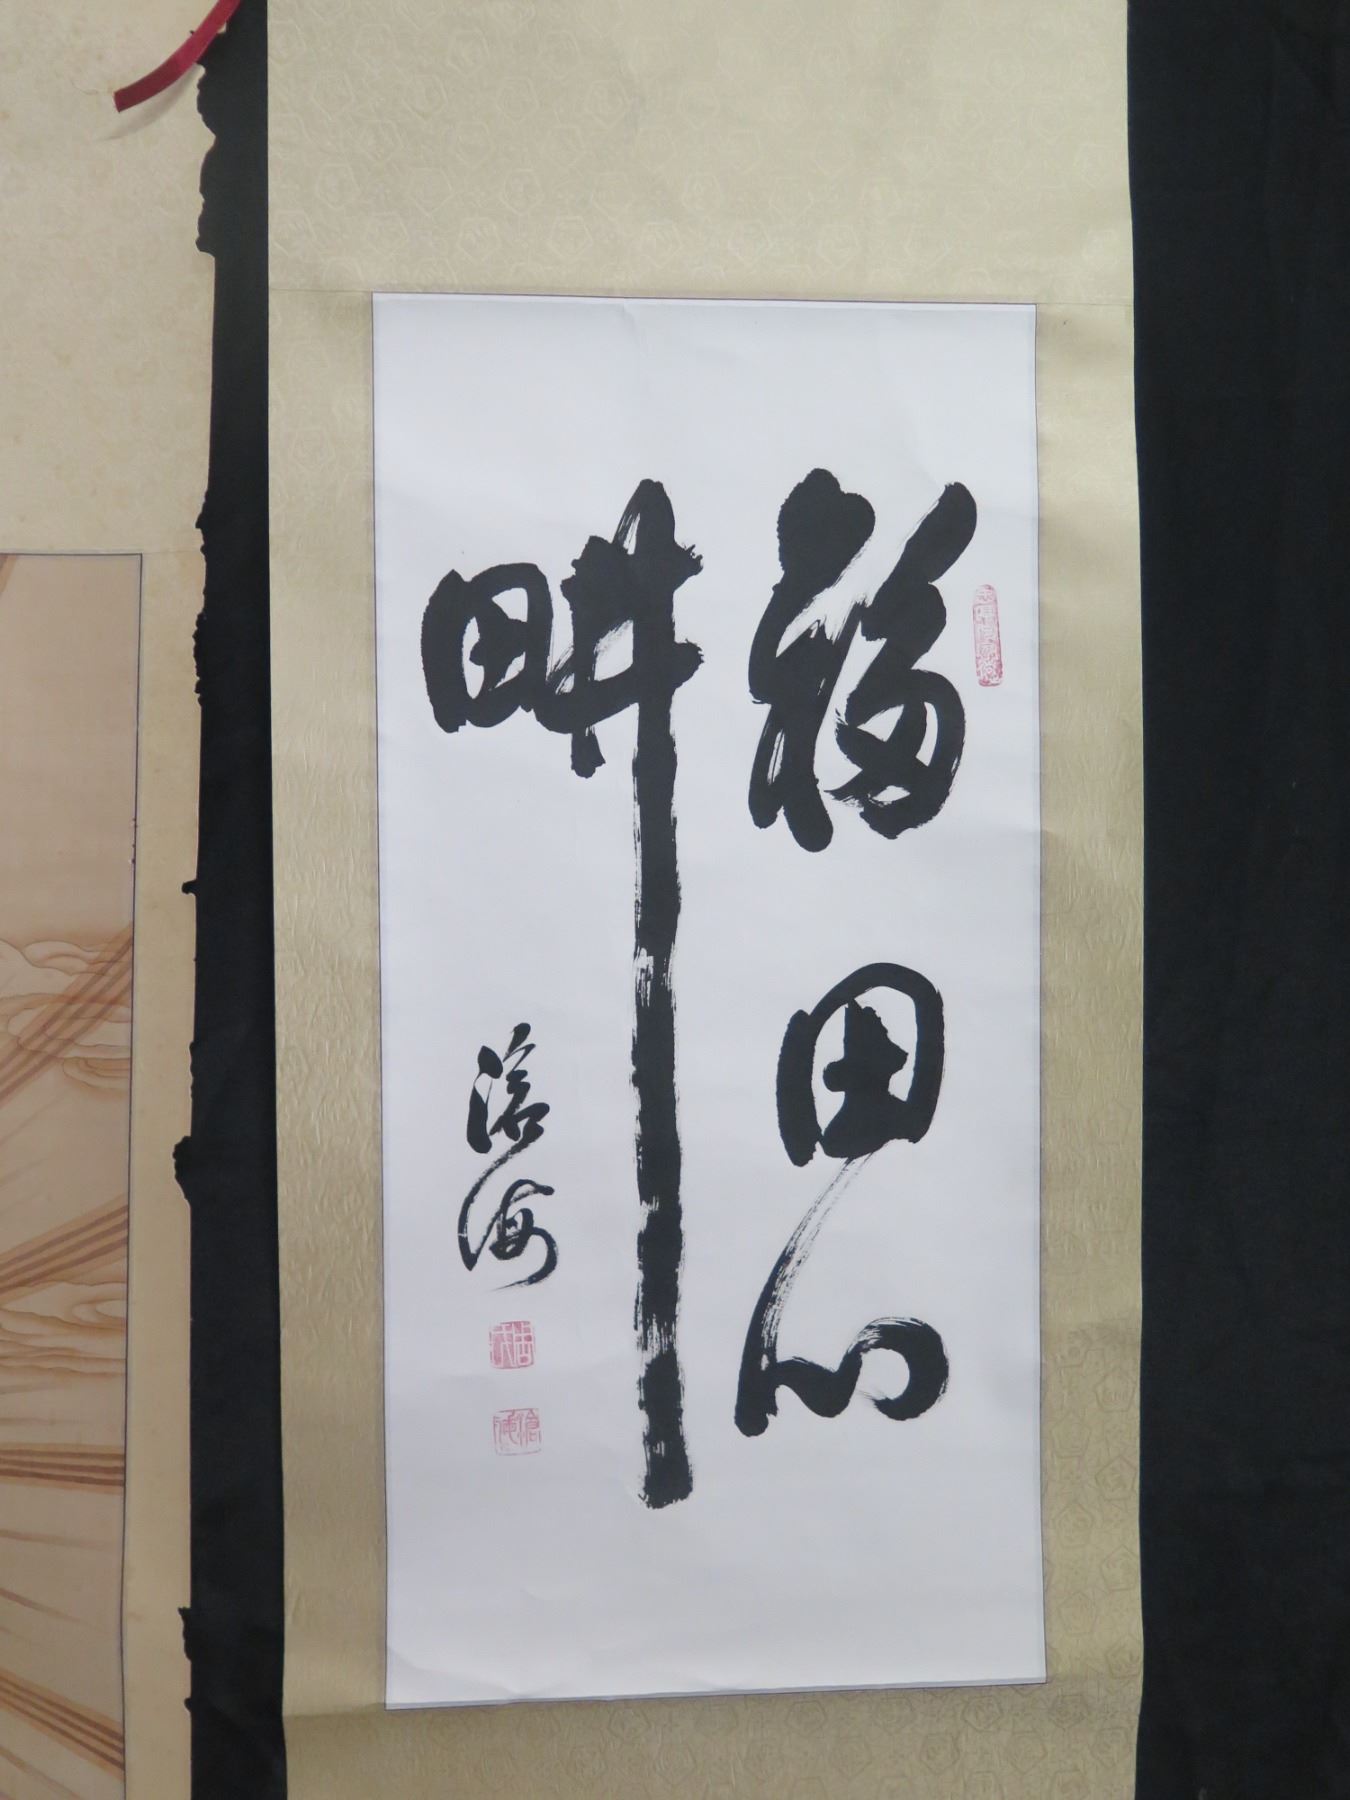 福田心
畊
滄海